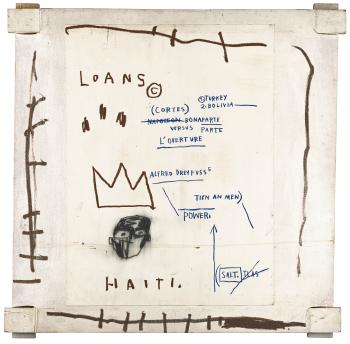 LOANS ©
① TURKEY
2. BOLIVIA
(CORTES)
NAPOLEON BONAPARTE
VERSUS PARTE
L'OVERTURE
ALFRED DREYFUSS
TIEN AN MEN)
POWER.
(SALT.
HAITI.